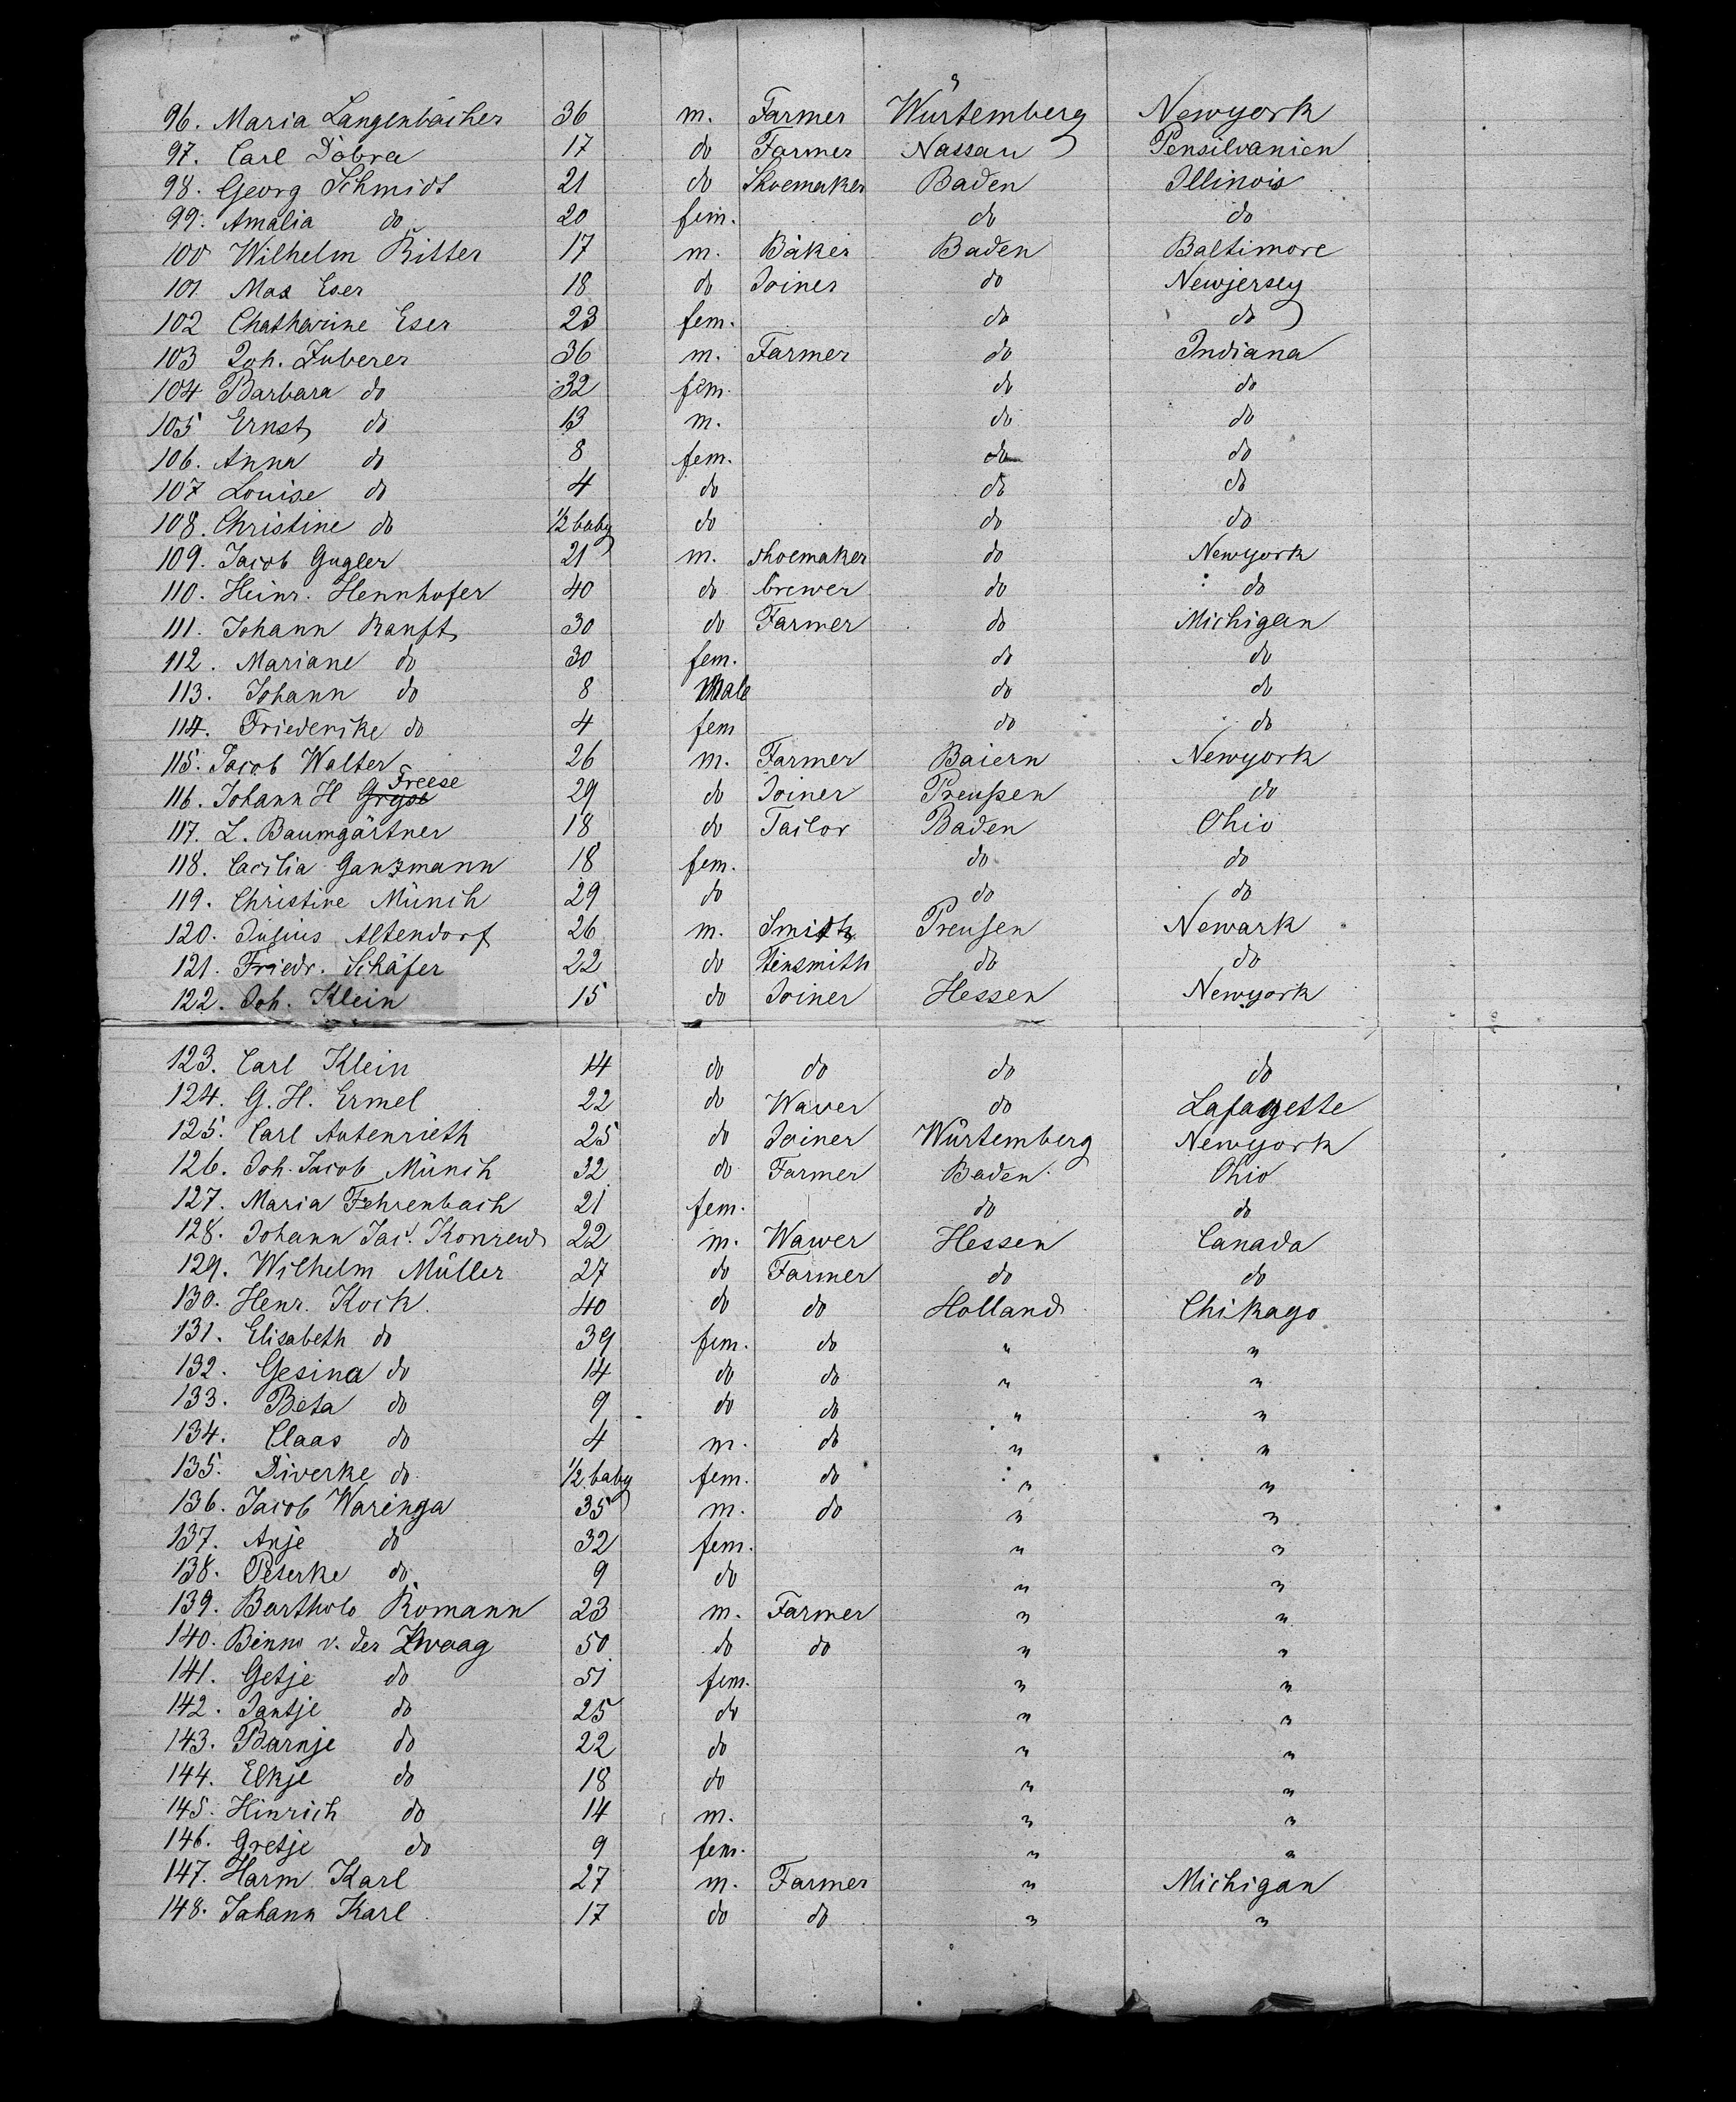 96. Maria Langenbächer 36 m. Farmer Würtemberg Newyork
97. Carl Döbra 17 do Farmer Nassau Pensilvanien
98. Georg Schmidt 21 do Shoemaker Baden Illinois
99. Amalia do 20 fem. do do
100 Wilhelm Ritter 17 m. Bäker Baden Baltimore
101 Max Eser 18 do Joiner do Newjersey
102 Chatharine Eser 23 fem. do do
103 Joh. Zuberer 36 m. Farmer do Indiana
104 Barbara do 32 fem. do do
105 Ernst do 13 m. do do
106. Anna do 8 fem. do do
107 Louise do 4 do do do
108. Christine do 1/2 baby do do do
109. Jacob Gugler 21 m. shoemaker do Newyork
110. Heinr. Hennhofer 40 do brewer do do
111. Johann Ranft 30 do Farmer do Michigan
112. Mariane do 30 fem. do do
113. Johann do 8 Male do do
114. Friederike do 4 fem do do
115. Jacob Walter 26 m. Farmer Baiern Newyork
116. Johann H Freese 29 do Joiner Preußen do
117. L. Baumgärtner 18 do Tailor Baden Ohio
118. Cacilia Ganzmann 18 fem. do do
119. Christine Münch 29 do do do
120. Julius Altendorf 26 m. Smith Preußen Newark
121. Friedr. Schäfer 22 do tinsmith do do
122. Joh. Klein 15 do Joiner Hessen Newyork
123. Carl Klein 14 do do do do
124. G. H. Ermel 22 do Waver do Lafayette
125. Carl Autenrieth 25 do Joiner Würtemberg Newyork
126. Joh. Jacob Münch 32 do Farmer Baden Ohio
127. Maria Fehrenbach 21 fem. do do
128. Johann Jac. Konrad 22 m. Wawer Hessen Canada
129. Wilhelm Müller 27 do Farmer do do
130. Henr. Kock. 40 do do Holland Chikago
131. Elisabeth do 39 fem. do " "
132. Gesina do 14 do do " "
133. Beta do 9 do do " "
134. Claas do 4 m. do " "
135. Diverke do 1/2 baby fem. do " "
136. Jacob Waringa 35 m. do " "
137. Anje do 32 fem. " "
138. Peterke do 9 do " "
139. Bartholo Romann 23 m. Farmer " "
140. Binno v. der Zwaag 50 do do " "
141. Getje do 51 fem. " "
142. Jantje do 25 do " "
143. Barnje do 22 do " "
144. Elkje do 18 do " "
145. Hinrich do 14 m. " "
146. Gretje do 9 fem. " "
147. Harm Karl 27 m. Farmer " Michigan
148. Johann Karl 17 do do " "